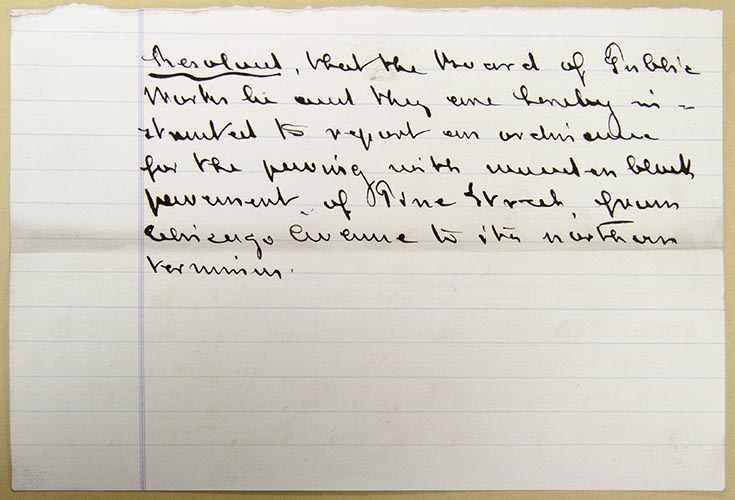 Resolved, that the Board of Public
Works be and they are hereby in=
structed to report an ordinance
for the paving with wooden block
pavement of Pine Street, from
Chicago Avenue to its northern
terminus.